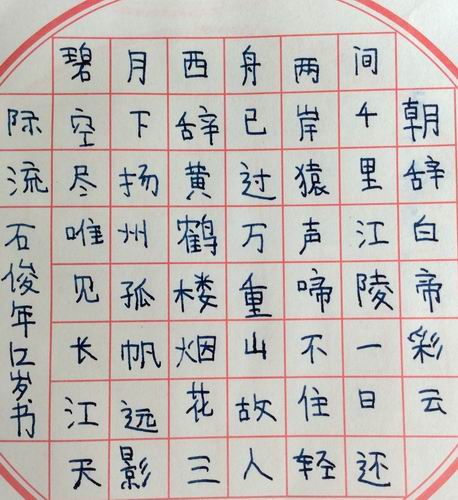 朝辞白帝彩云
间千里江陵一日还
两岸猿声啼不住轻
舟已过万重山故人
西辞黄鹤楼烟花三
月下扬州孤帆远影
碧空尽唯见长江天
际流
石俊年12岁书